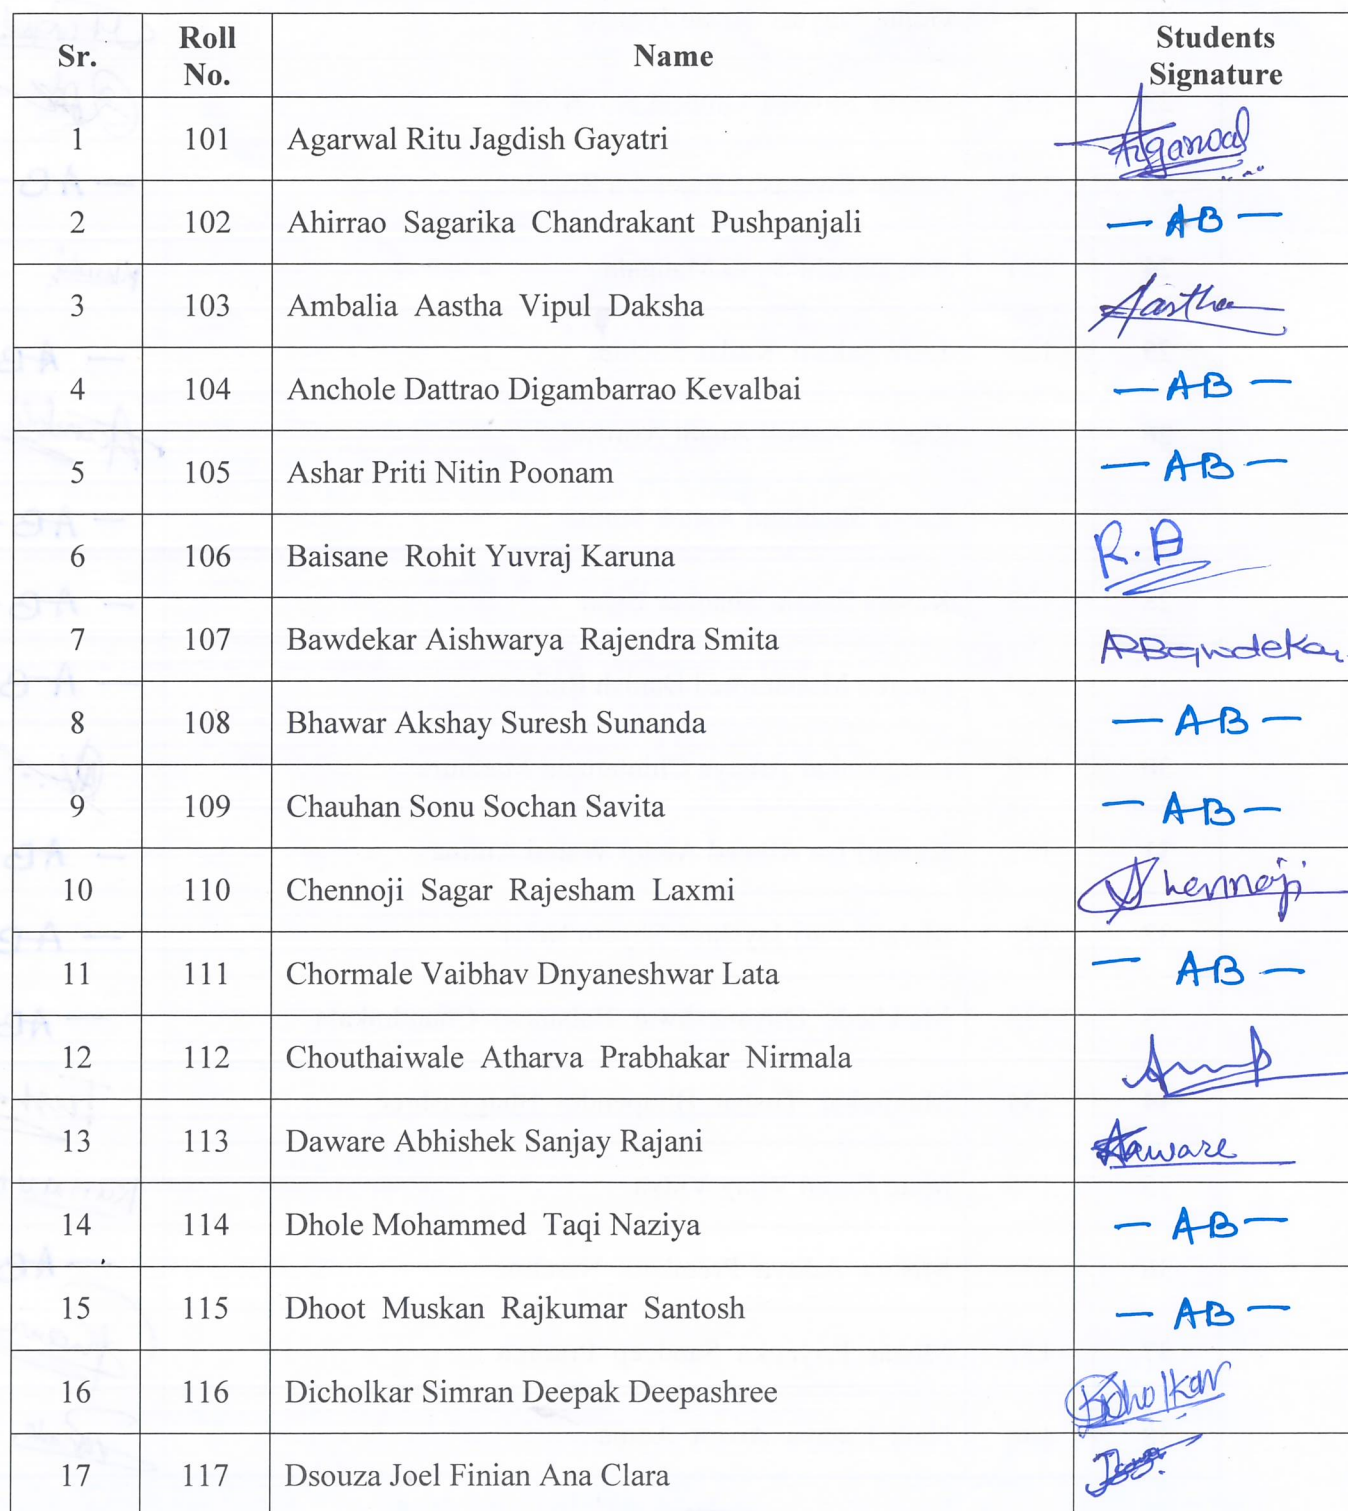 Sr. Roll No. Name Students Signature
1 101 Agarwal Ritu Jagdish Gayatri Agarwal
2 102 Ahirrao Sagarika Chandrakant Pushpanjali — AB —
3 103 Ambalia Aastha Vipul Daksha Aastha
4 104 Anchole Dattrao Digambarrao Kevalbai — AB —
5 105 Ashar Priti Nitin Poonam — AB —
6 106 Baisane Rohit Yuvraj Karuna R.B
7 107 Bawdekar Aishwarya Rajendra Smita ARBawdekar
8 108 Bhawar Akshay Suresh Sunanda — AB —
9 109 Chauhan Sonu Sochan Savita — AB —
10 110 Chennoji Sagar Rajesham Laxmi Chennoji
11 111 Chormale Vaibhav Dnyaneshwar Lata — AB —
12 112 Chouthaiwale Atharva Prabhakar Nirmala
13 113 Daware Abhishek Sanjay Rajani Daware
14 114 Dhole Mohammed Taqi Naziya — AB —
15 115 Dhoot Muskan Rajkumar Santosh — AB —
16 116 Dicholkar Simran Deepak Deepashree Dicholkar
17 117 Dsouza Joel Finian Ana Clara